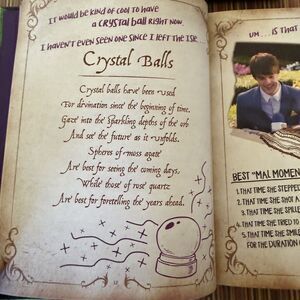 It would be kind of cool to have
a crystal ball right now.
I haven't even seen one since I left the Isle
Crystal Balls
Crystal balls have been used
For divination since the beginning of time.
Gaze into the sparkling depths of the orb
And see the future as it unfolds.
Spheres of moss agate
Are best for seeing the coming days,
While those of rose quartz
Are best for foretelling the years ahead.
UM . . . IS THAT
BEST "MAL MOMEN
1. THAT TIME SHE STEPPE
2. THAT TIME SHE SHOT A
3. THAT TIME SHE SPILLE
4. THAT TIME SHE TRIED TO
5. THAT TIME SHE SMILE
FOR THE DURATION